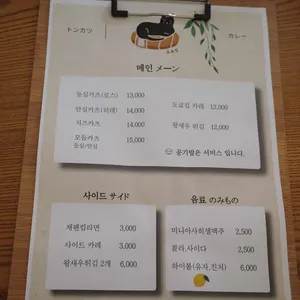 トンカツ
カレー
메인 メーン
등심카츠(로스) 13,000
안심카츠(히레) 14,000
치즈카츠 14,000
모듬카츠 15,000
등심/안심
도로킴 카레 12,000
왕새우 튀김 12,000
공기밥은 서비스 입니다.
사이드 サイド
재팬컵라면 3,000
사이드 카레 3,000
왕새우튀김 2개 6,000
음료 のみもの
미니아사히생맥주 2,500
콜라,사이다 2,500
하이볼(유자,진저) 6,000